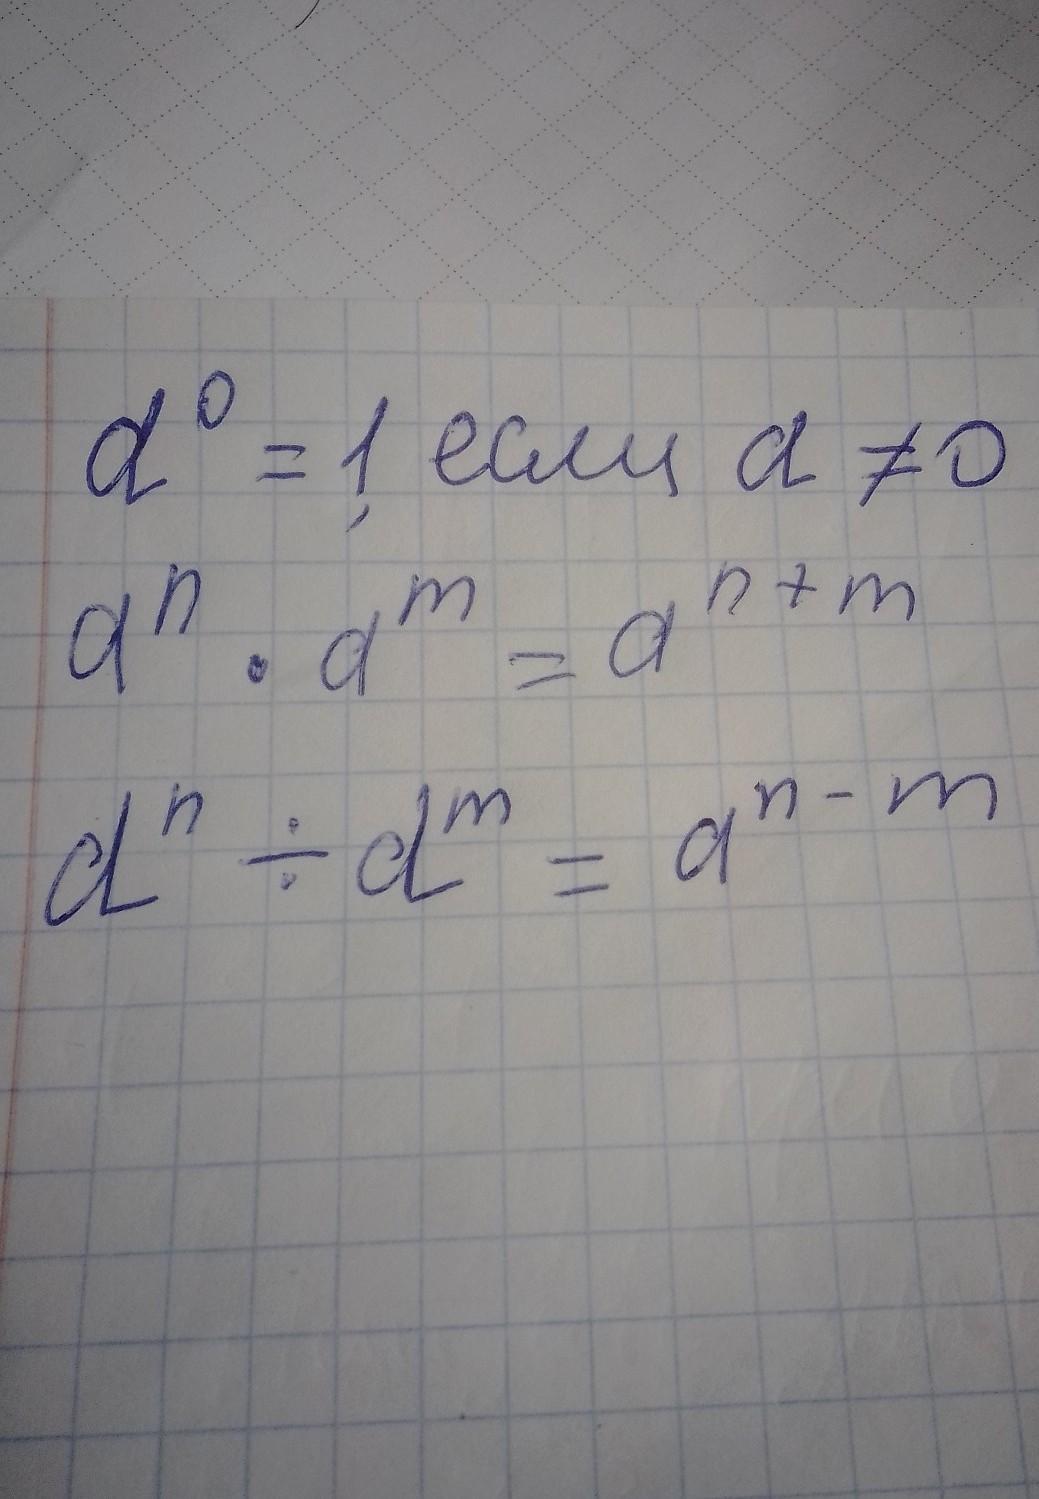 a⁰ = 1, если a ≠ 0
aⁿ · aᵐ = aⁿ⁺ᵐ
aⁿ ÷ aᵐ = aⁿ⁻ᵐ